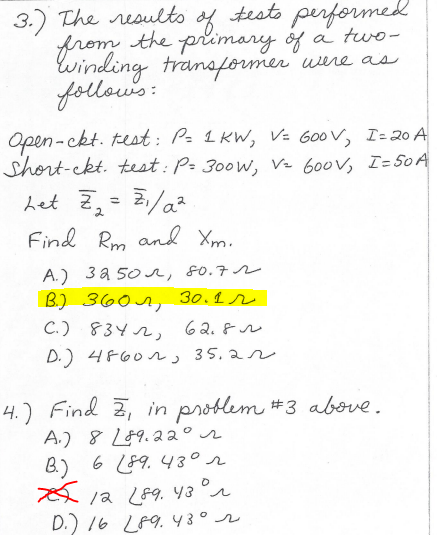 3.) The results of tests performed
from the primary of a two-
winding transformer were as
follows:
Open-ckt. test: P= 1 KW, V= 600V, I=20 A
Short-ckt. test: P= 300W, V= 600V, I=50A
Let Z̅₂ = Z̅₁/a²
Find Rm and Xm.
A.) 3250 Ω, 80.7 Ω
B.) 360 Ω, 30.1 Ω
C.) 834 Ω, 62.8 Ω
D.) 4860 Ω, 35.2 Ω
4.) Find Z̅₁ in problem #3 above.
A.) 8 ∠89.22° Ω
B.) 6 ∠89.43° Ω
C.) 12 ∠89.43° Ω
D.) 16 ∠89.43° Ω